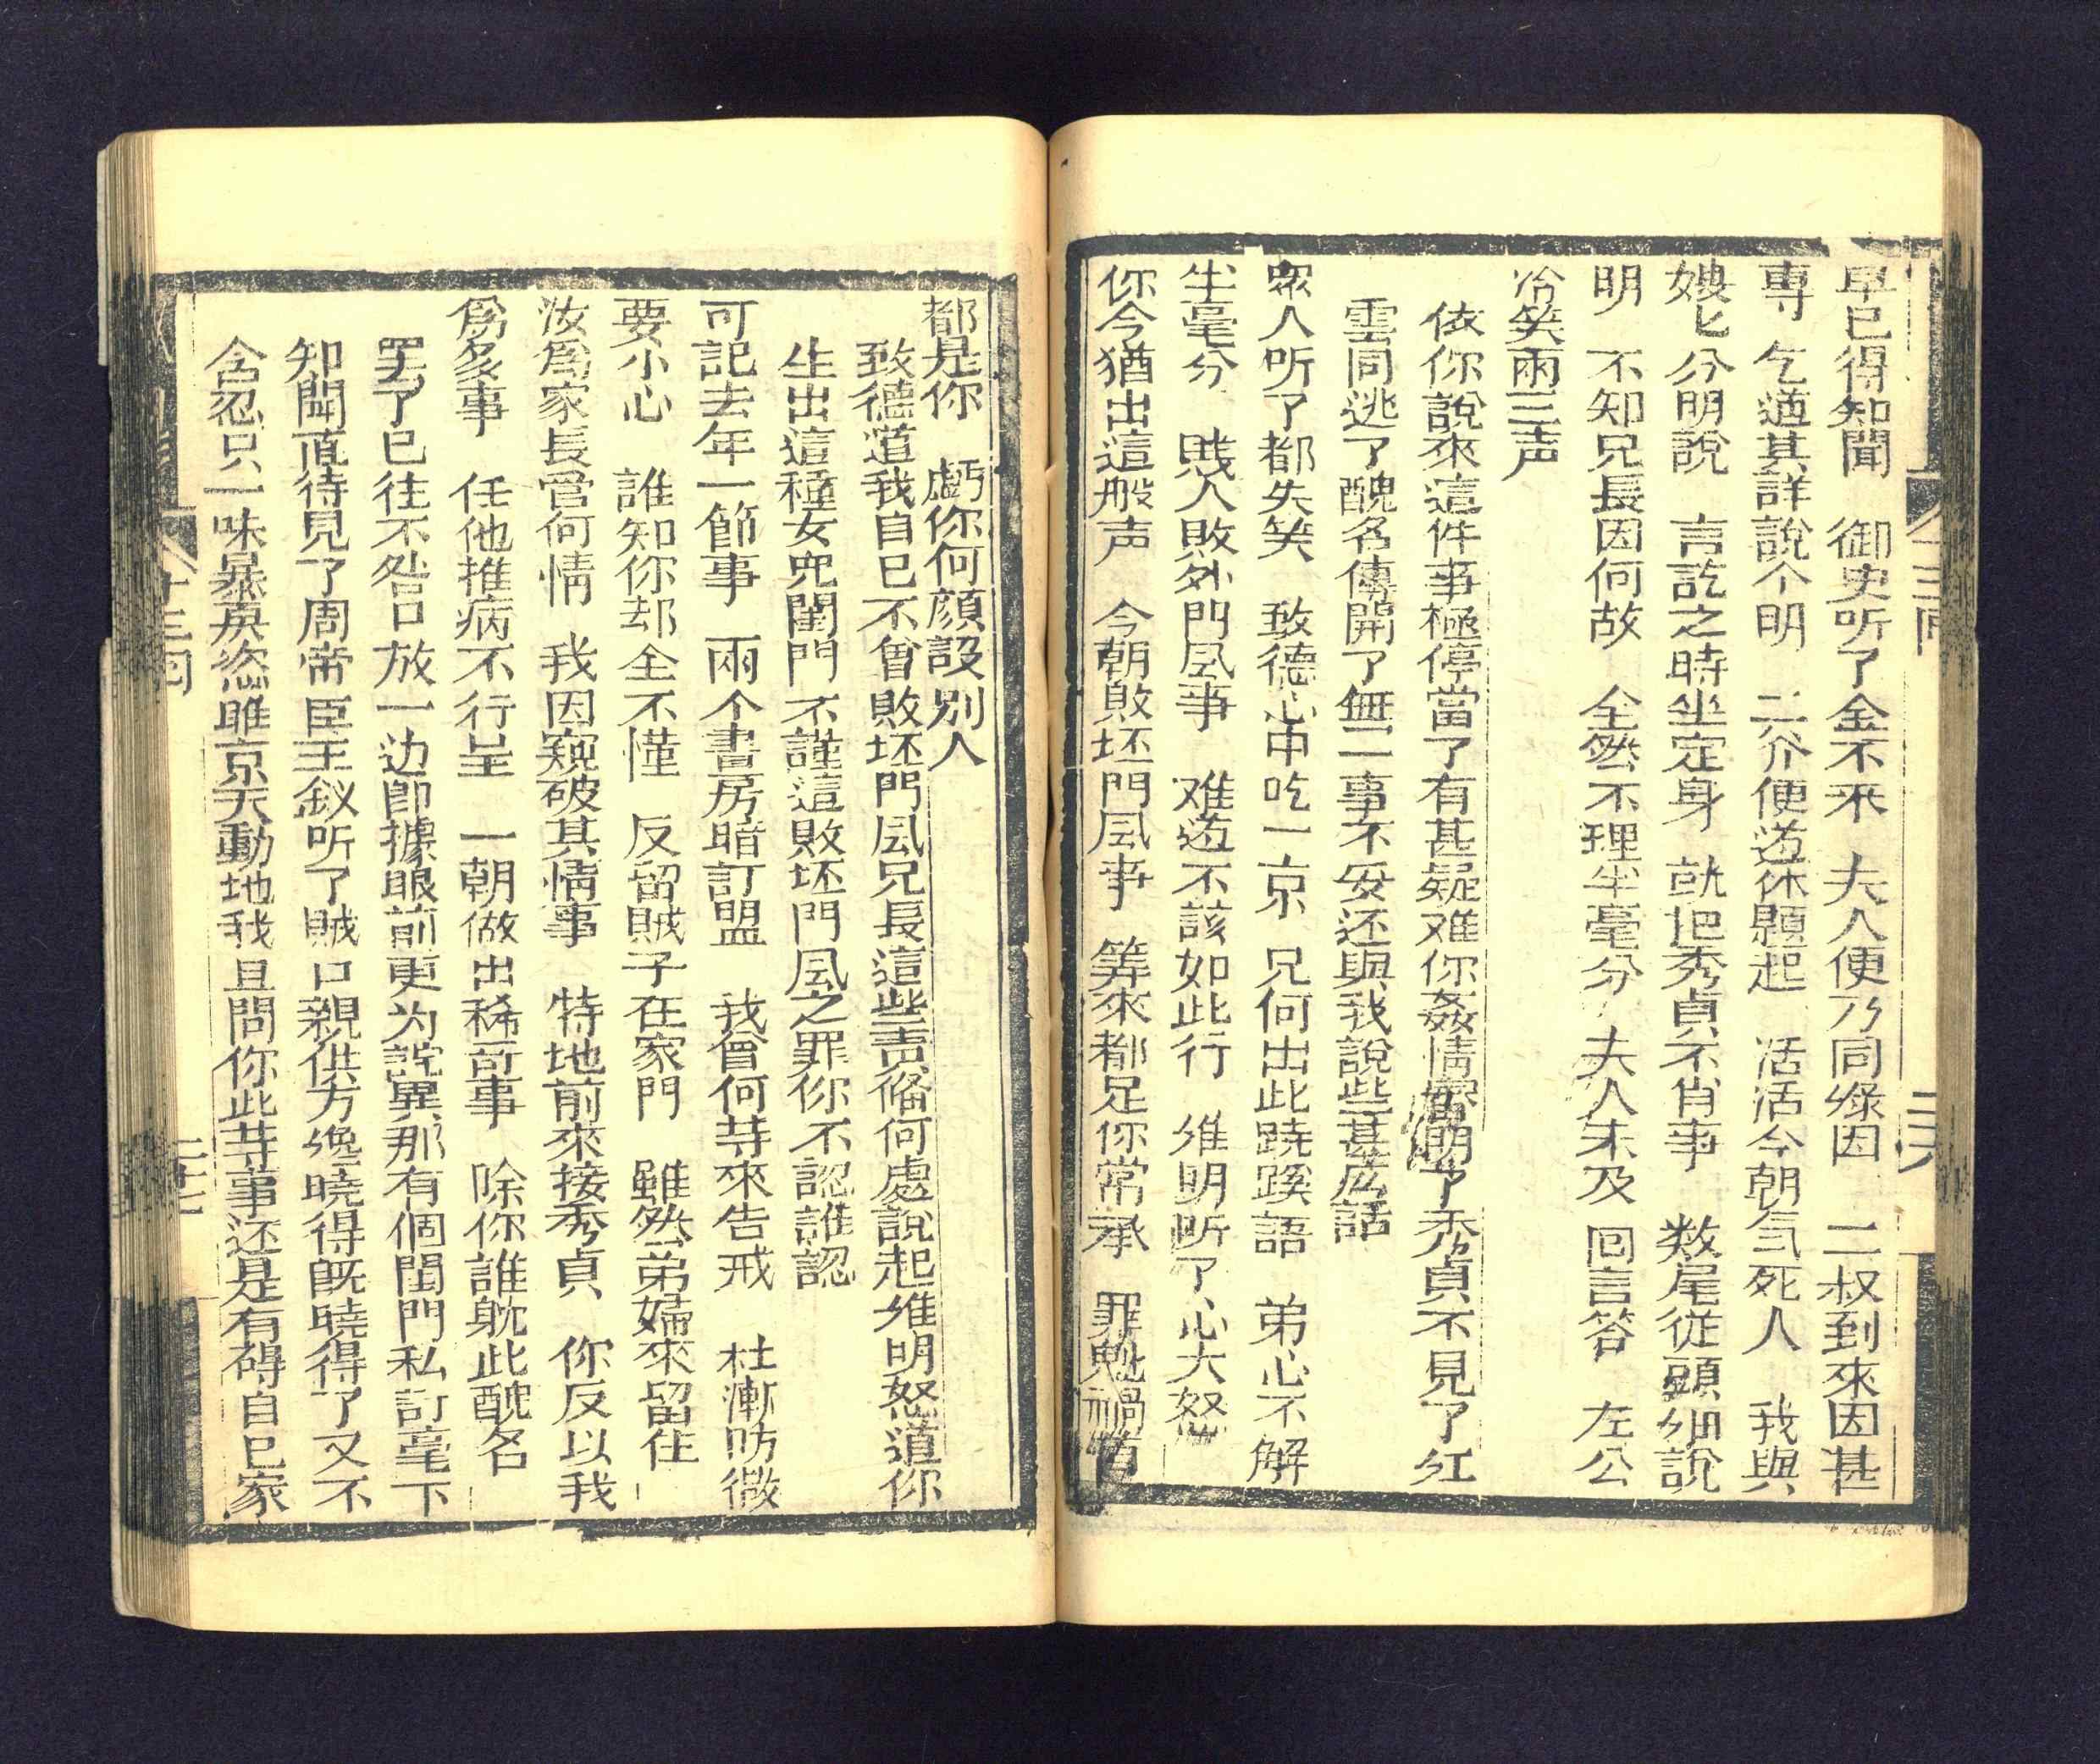 早已得知聞　御史听了金不采　夫人便乃同緣因　二叔到來因甚
專　乞道其詳說个明　二介便道休題起　活活今朝气死人　我與
嫂匕分明說　言訖之時坐定身　就把秀貞不肖事　数尾從頭細說
明　不知兄長因何故　全然不理半毫分　夫人未及回言答　左公
冷笑兩三声
依你說來這件事極停當了有甚疑难你姦情當明了秀貞不見了紅
雲同逃了醜名傳開了無一事不妥还與我說些甚庅話
衆人听了都失笑　致德心中吃一京　兄何出此蹺蹊語　弟心不解
半毫分　賤人敗外門風事　难道不該如此行　維明听了心大怒
你今猶出這般声　今朝敗坯門風事　筭來都足你常承　罪魁禍首
都是你　虧你何顔設别人
致德道我自已不曾敗坯門風兄長這些責俻何處說起維明怒道你
生出這種女兒閨門不謹這敗坯門風之罪你不認誰認
可記去年一節事　兩个書房暗訂盟　我曾何䓁來告戒　杜漸防微
要小心　誰知你却全不懂　反留賊子在家門　雖然弟婦來留住
汝爲家長管何情　我因窺破其情事　特地前來接秀貞　你反以我
爲多事　任他推病不行呈　一朝做出稀奇事　除你誰躭此醜名
罢了已往不咎口放一边即據眼前更为詫異那有個閨門私訂毫下
知聞直待見了周帝臣王釵听了賊口親供方纔曉得既曉得了又不
含忍只一味暴戾恣睢京天動地我且問你此䓁事还是有碍自已家
十三回
二六
十三回
二十七